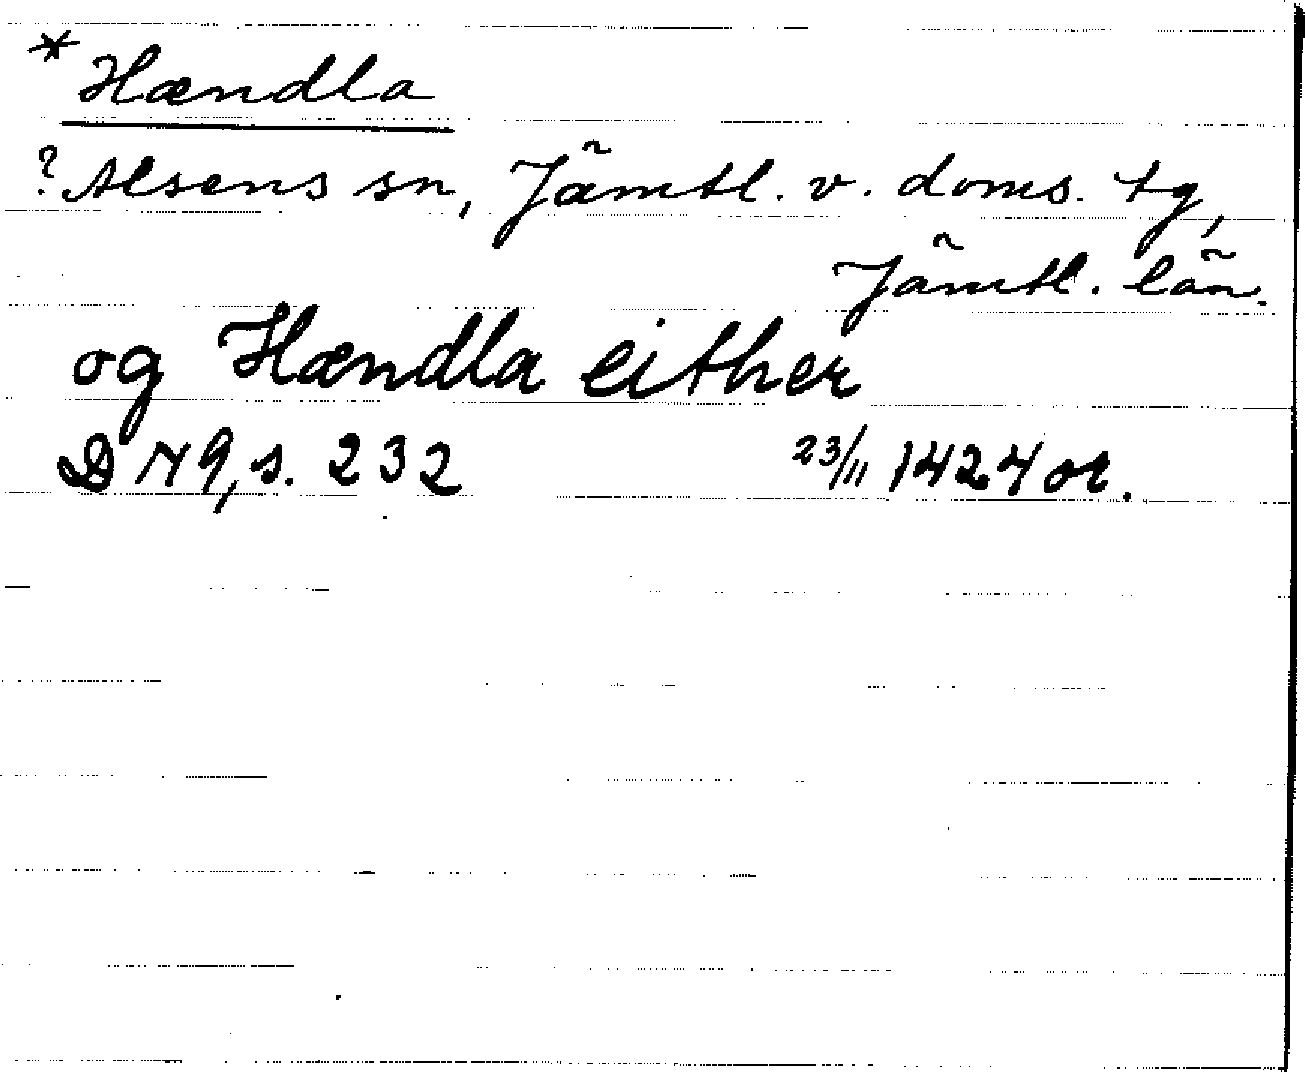 *Hændla
?Alsens sn, Jämtl. v. doms. tg,
Jämtl. län.
og Hændla either
DN 9, s. 232 23/11 1427 or.